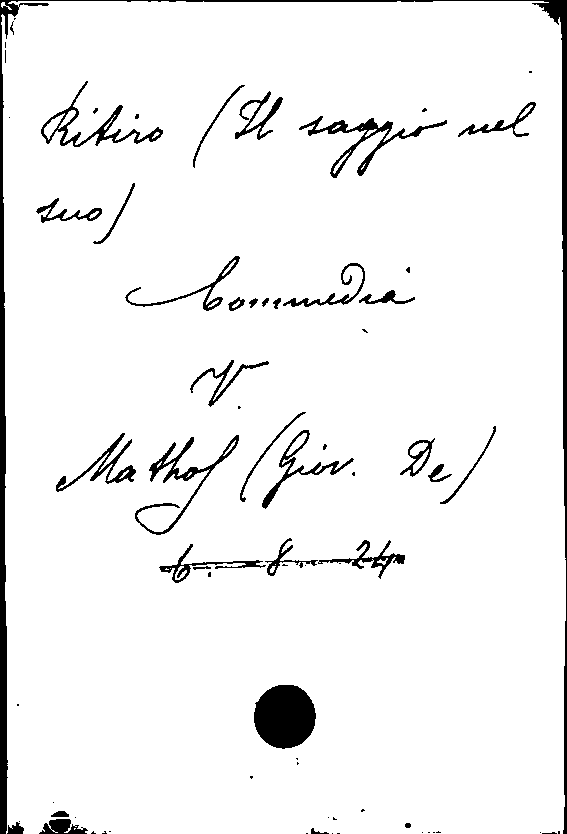 Ritiro (Il saggio nel
suo)
Commedia
V.
Mathos (Giov. De)
6. 8. 24